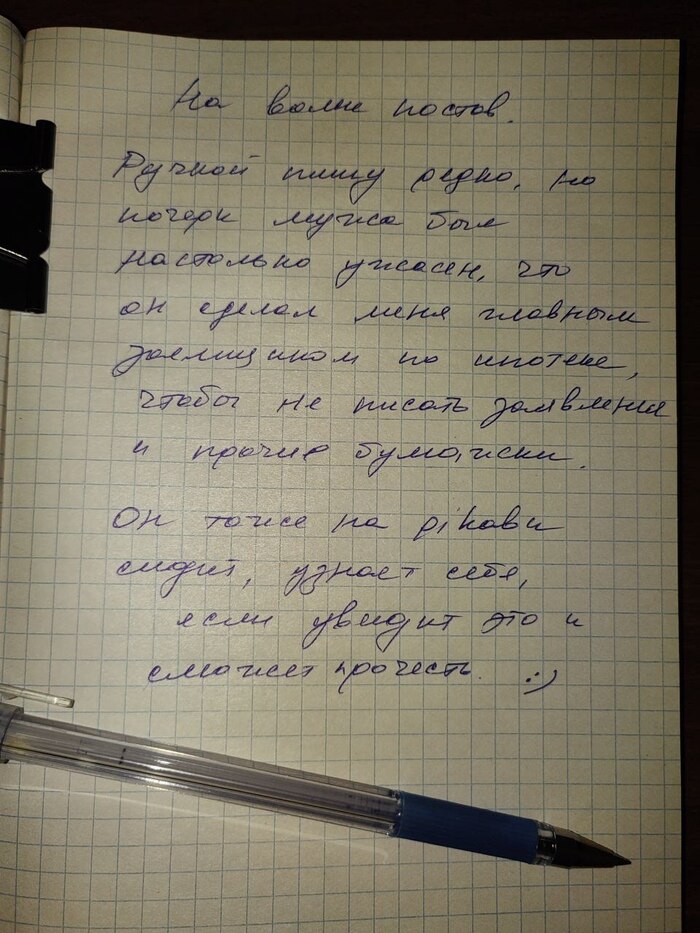 На волне постов.
Ручкой пишу редко, но
почерк мужа был
настолько ужасен, что
он сделал меня главным
заемщиком по ипотеке,
чтобы не писать заявления
и прочие бумажки.
Он тоже на pikabu
сидит, узнает себя,
если увидит это и
сможет прочесть. :)